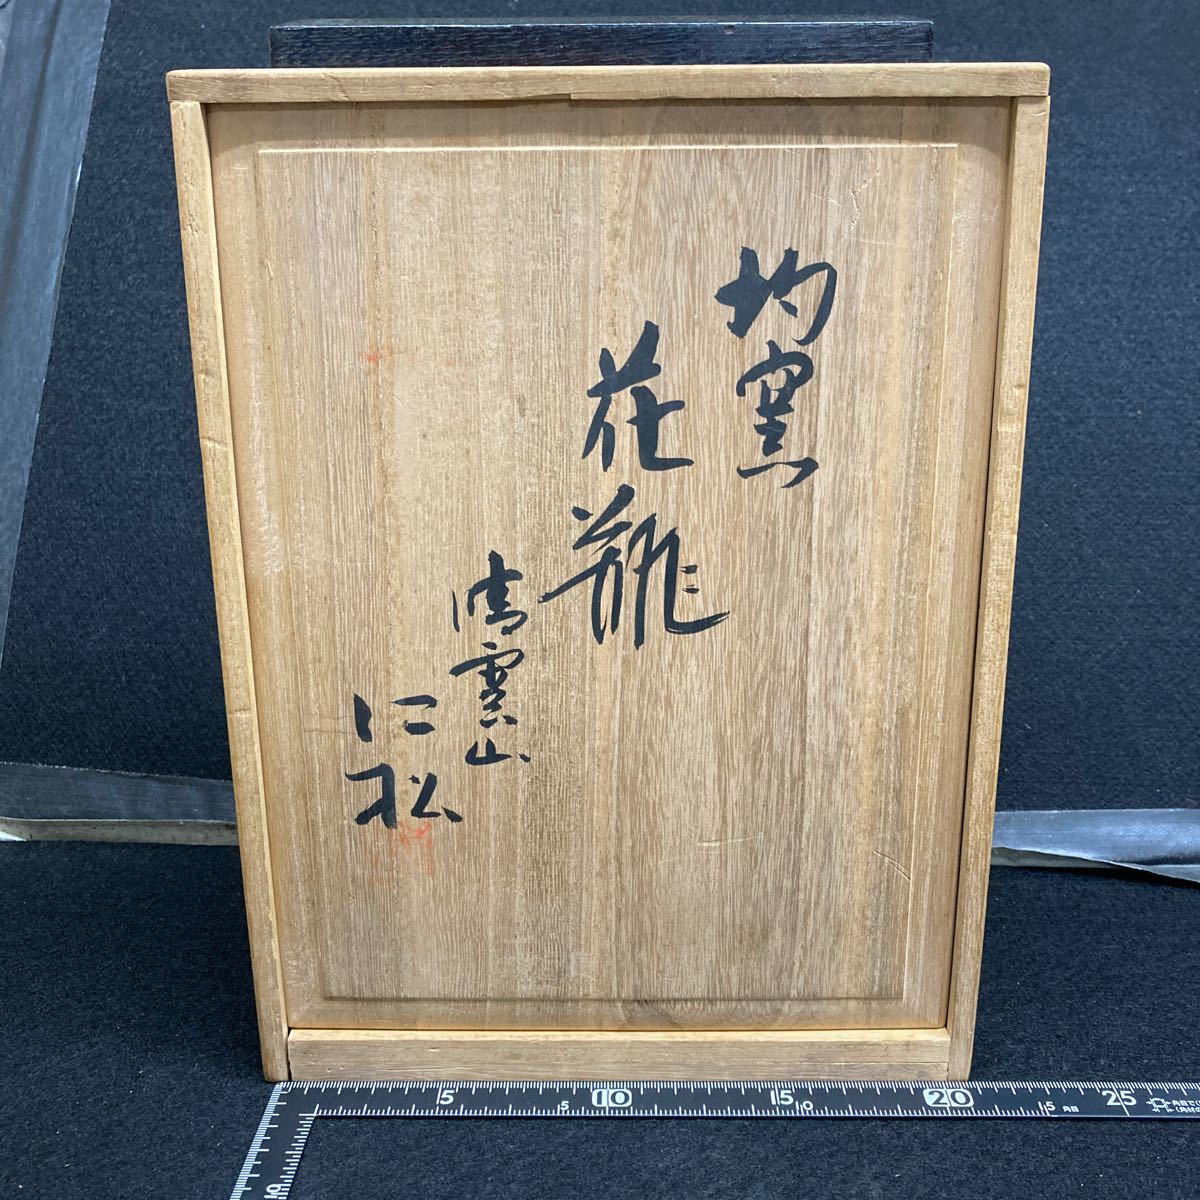 均窯
花瓶
清雲山
仁松
5 10 15 20 25
5 0 5 角目